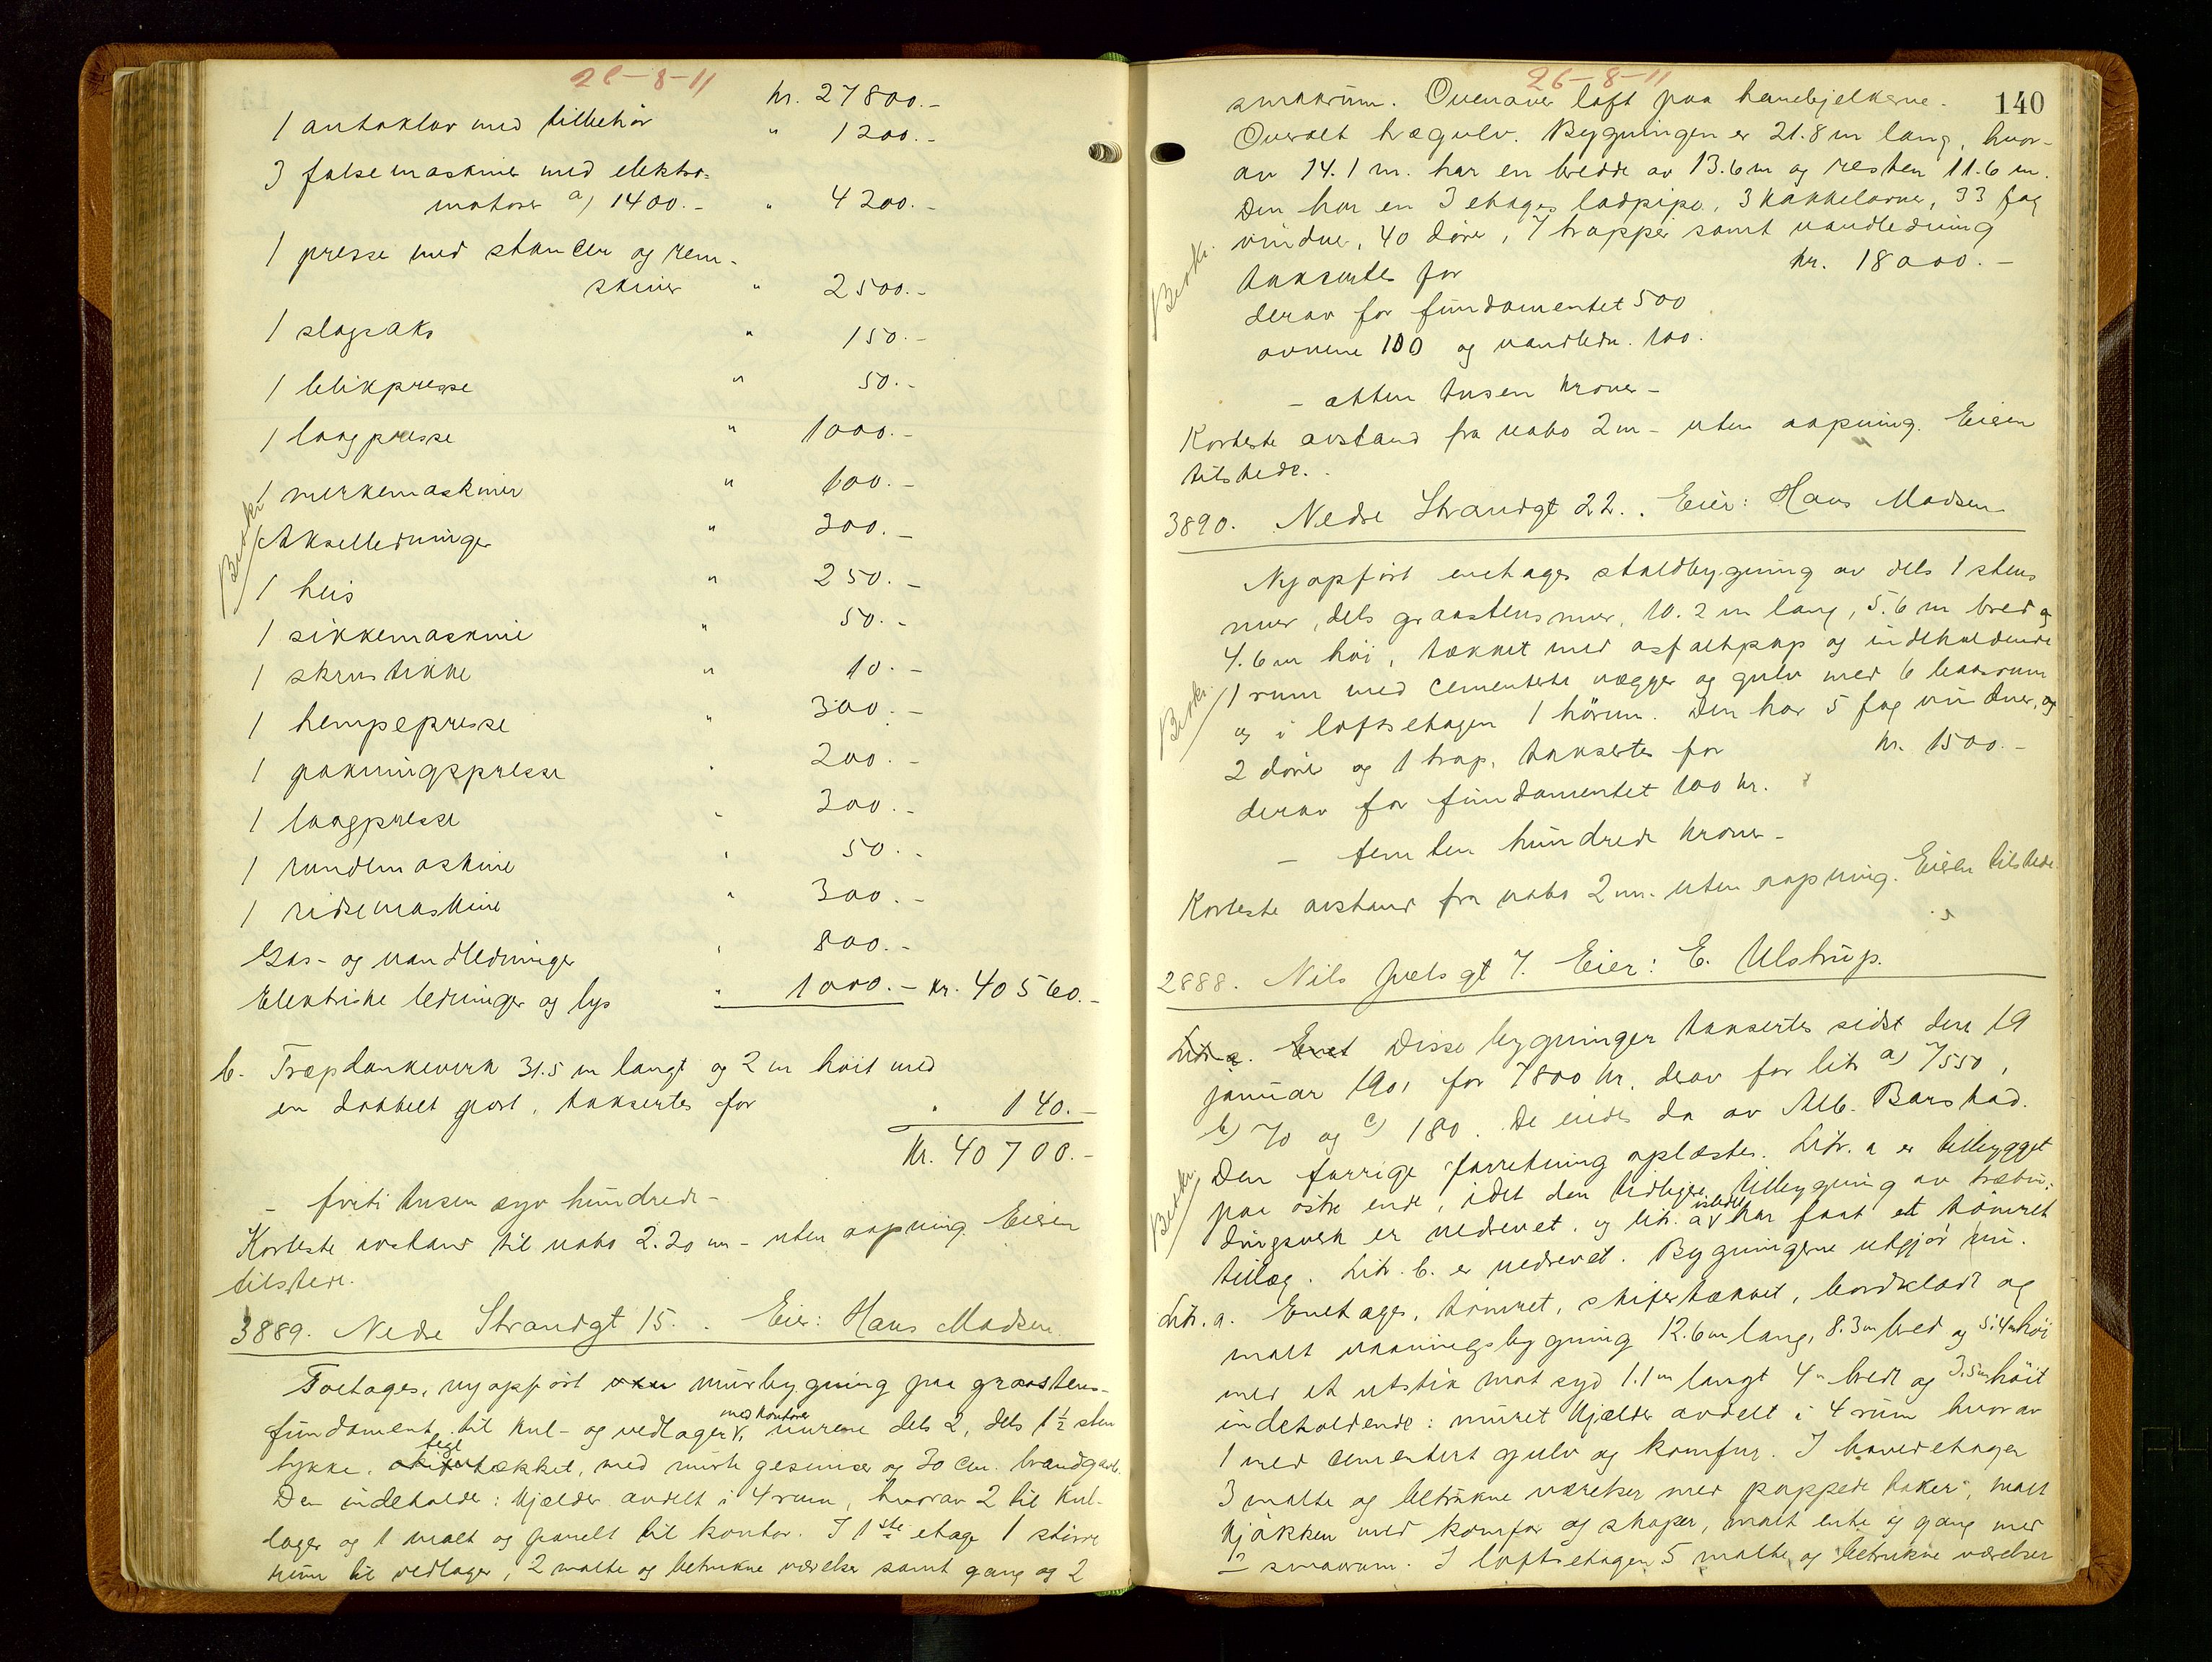 26-8-11
kr. 27800.-
1 autoklav med tilbehör " 1200.-
3 false maskiner med elektro-
motorer a) 1400.- " 4200.-
1 presse med stancer og rem-
skiver " 2500.-
1 slagsaks " 150.-
1 blikpresse " 50.-
1 laagpresse " 1000.-
1 merkemaskiner " 600.-
Akselledninger " 200.-
Beskr.
1 heis " 250.-
1 sikkemaskine " 50.-
1 skrustikke " 10.-
1 hempepresse " 300.-
1 pakningspresse " 200.-
1 laagpresse " 300.-
1 rundemaskine " 50.-
1 ridsemaskine " 300.-
Gas- og vandledninger " 800.-
Elektriske ledninger og lys " 1000.- kr. 40560.-
b. Træplankeverk 31.5 m langt og 2 m höit med
en dobbelt port, takseres for " 140.-
Kr. 40700.-
- förti tusen syv hundrede -
Korteste avstand til nabo 2.20 m - uten aapning. Eieren
tilstede.
3889. Nedre Strandgt 15. . Eier: Hans Madsen.
Toetages, nyopfört murbygning paa graastens-
fundament til kul- og vedlager med kontorer, murene dels 2, dels 1½ sten
tykke, tegltækket, med murte gesimser og 30 cm. brandgavl.
Den indeholder: Kjælder avdelt i 4 rum, hvorav 2 til kul-
lager og 1 malt og panelt til kontor. I 1ste etage 1 större
rum til vedlager, 2 malte og betrukne værelser samt gang og 2
26-8-11
140
smaarum. Ovenover loft paa hanebjelkerne.
Overalt trægulv. Bygningen er 21.8 m lang, hvor-
av 14.1 m. har en bredde av 13.6 m og resten 11.6 m.
Den har en 3 etages ladpipe, 3 kakkelovner, 33 fag
vinduer, 40 döre, 7 trapper samt vandledning
Beskr.
takseres for kr. 18000.-
derav for fundamentet 500
ovnene 100 og vandledn. 100.
- atten tusen kroner -
Korteste avstand fra nabo 2 m - uten aapning. Eieren
tilstede.
3890. Nedre Strandgt 22. . Eier: Hans Madsen
Nyopfört enetages staldbygning av dels 1 stens
mur, dels graastensmur, 10.2 m lang, 5.6 m bred og
4.6 m höi, tækket med asfaltpap og indeholdende
Beskr.
1 rum med cementerte vægger og gulv med 6 baasrum
og i loftsetagen 1 hörum. Den har 5 fag vinduer, og
2 döre og 1 trap, takseres for kr. 1500.-
derav for fundamentet 100 kr.
- femten hundrede kroner -
Korteste avstand fra nabo 2 m. uten aapning. Eieren tilstede.
2888. Nils Juels gt 7. Eier: E. Ulstrup.
Litr. a. Enet Disse bygninger takseres sidst den 19
januar 1901 for 7800 kr. derav for litr a) 7550,
b) 70 og c) 180. De eiedes da av Alb. Barstad.
Den forrige forretning oplæstes. Litr. a er tilbygget
Beskr.
paa östre ende, idet den tidligere tilbygning av træbin-
dingsverk er nedrevet. og litr. a isteden har faat et tömret
tillæg. Litr. b. er nedrevet. Bygningerne utgjör nu.
Litr. a. Enetages, tömret, skifertækket, bordklædt og
malt vaaningsbygning 12.6 m lang, 8.3 m bred og 5.4 m höi
med et utstik mot syd 1.1 m langt 4 m bredt og 3.5 m höit
indeholdende: muret kjælder avdelt i 4 rum hvorav
1 med cementert gulv og komfur. I hovedetagen
3 malte og betrukne værelser med pappede taker, malt
kjökken med komfur og skaper, malt entre og gang med
2 smaarum. I loftsetagen 5 malte og betrukne værelser